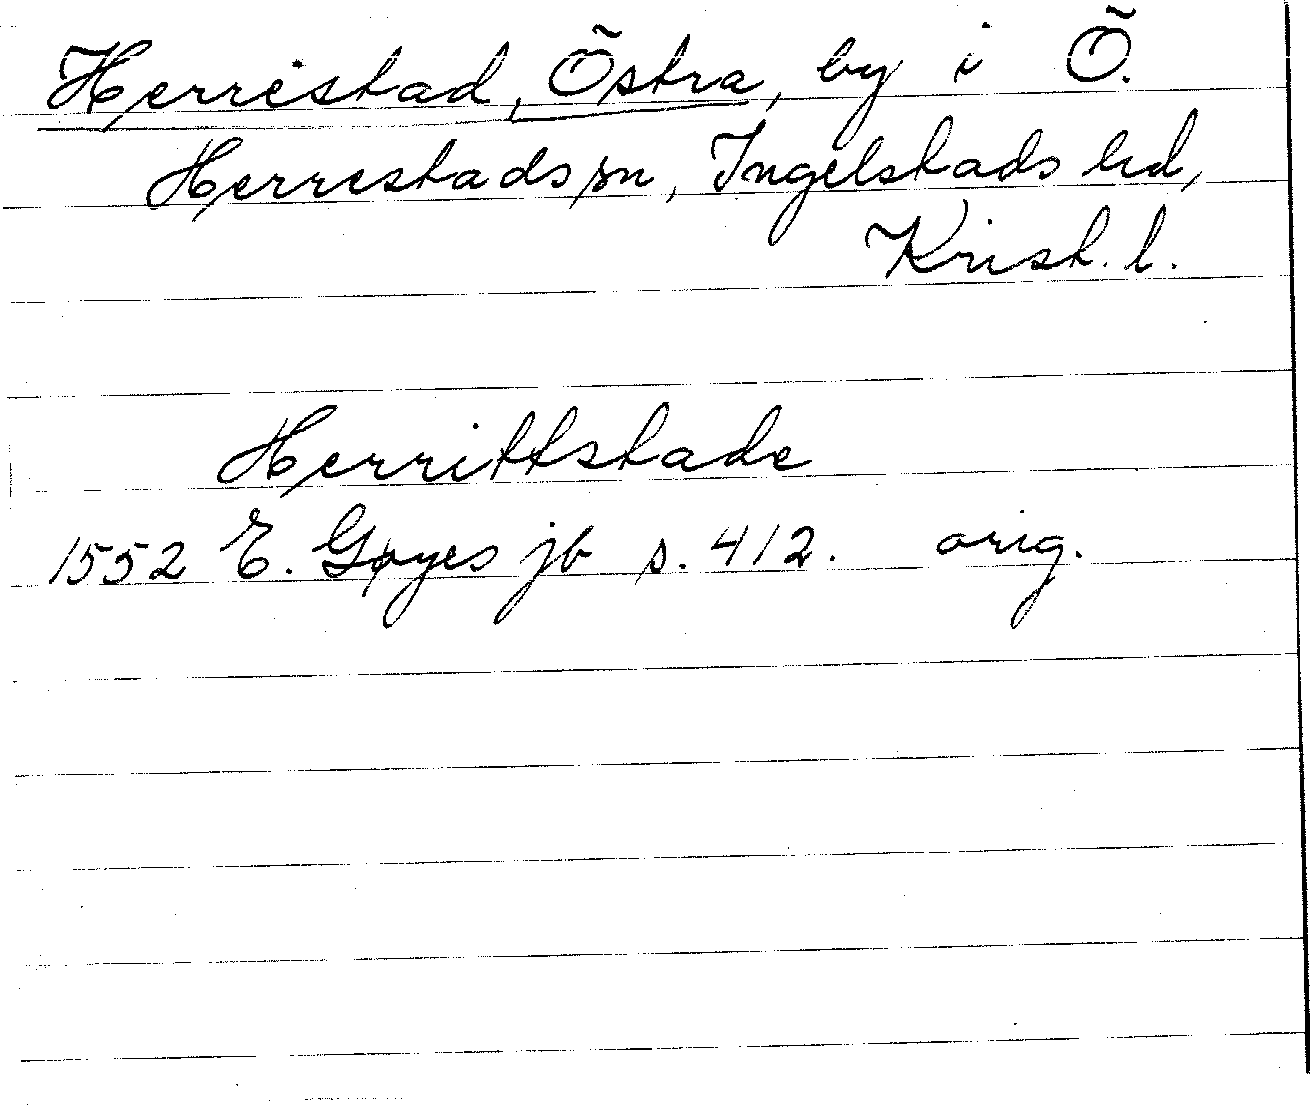 Herrestad, Östra, by i Ö.
Herrestads sn, Ingelstads hd,
Krist. l.
Herrittstade
1552 E. Gøyes jb s. 412. orig.